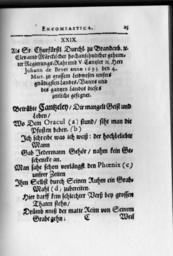 ENCOMIASTICA. 25
XXIX.
Als Sr. Churfürstl. Durchl. zu Brandenb. w.
Clevisch Märckischer hochansehnlicher geheim-
ter Regierungs-Rath und V. Cantzler Hr. Herr
Johann de Beyer anno 1693. den 4.
Mart. zu grossem Leidwesen unsers
gnädigsten Landes-Vaters und
des gantzen Landes dieses
zeitliche gesegnet.
Betrübte Cantzeley / Dir mangelt Geist und
Leben /
Wo Dein Oracul (a) stund / siht man die
Pfosten beben. (b)
Ich schreibe was ich weiß: der hochbeliebte
Mann
Gab Jedermann Gehör / nahm sein Ge-
schencke an.
Man sahe schon vorlängst den Phœnix (c)
unsrer Zeiten
Ihm Selbst durch Seinen Ruhm ein Grab-
Mahl (d) zubereiten.
Hier darff kein schlechter Verß bey grossen
Thaten stehn /
Drum muß der matte Reim von Seinem
Grabe gehn. C Weil